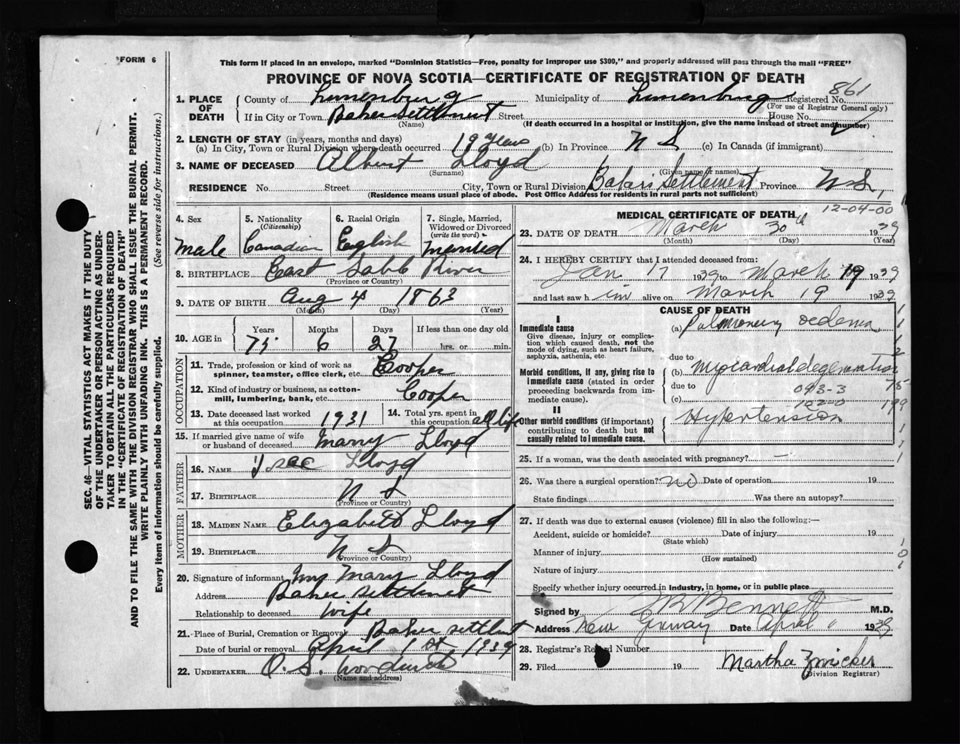 FORM 6
This form if placed in an envelope, marked "Dominion Statistics—Free, penalty for improper use $300," and properly addressed will pass through the mail "FREE"
PROVINCE OF NOVA SCOTIA—CERTIFICATE OF REGISTRATION OF DEATH
861
1. PLACE OF DEATH
County of Lunenburg Municipality of Lunenburg Registered No.
(For use of Registrar General only)
If in City or Town Baker Settlement Street House No.
(Name) (If death occurred in a hospital or institution, give the name instead of street and number)
2. LENGTH OF STAY (in years, months and days)
(a) In City, Town or Rural Division where death occurred 19 years (b) In Province N S (c) In Canada (if immigrant)
3. NAME OF DECEASED Albert Lloyd
(Surname) (Given name or names)
RESIDENCE No. Street City, Town or Rural Division Settlement Province N S.
(Residence means usual place of abode. Post Office Address for residents in rural parts not sufficient)
4. Sex
Male
5. Nationality (Citizenship)
Canadian
6. Racial Origin
English
7. Single, Married, Widowed or Divorced (write the word)
Married
8. BIRTHPLACE East River
(Province or Country)
9. DATE OF BIRTH Aug 4 1863
(Month) (Day) (Year)
10. AGE in
Years Months Days If less than one day old
75 6 27 hrs. or min.
OCCUPATION
11. Trade, profession or kind of work as spinner, teamster, office clerk, etc. Cooper
12. Kind of industry or business, as cotton-mill, lumbering, bank, etc. Cooper
13. Date deceased last worked at this occupation 1931
14. Total yrs. spent in this occupation all life
15. If married give name of wife or husband of deceased Mary Lloyd
FATHER
16. NAME Lloyd
17. BIRTHPLACE N S
(Province or Country)
MOTHER
18. MAIDEN NAME Elizabeth Lloyd
19. BIRTHPLACE N S
(Province or Country)
20. Signature of informant Mrs Mary Lloyd
Address Baker Settlement
Relationship to deceased Wife
21. Place of Burial, Cremation or Removal Baker
Date of burial or removal April 1st, 1939
22. UNDERTAKER O. S.
(Name and address)
MEDICAL CERTIFICATE OF DEATH
12-04-00
23. DATE OF DEATH March 30th 1939
(Month) (Day) (Year)
24. I HEREBY CERTIFY that I attended deceased from:
Jan 17 1939 to March 19 1939
and last saw him alive on March 19 1939
CAUSE OF DEATH
I
Immediate cause
Give disease, injury or complication which caused death, not the mode of dying, such as heart failure, asphyxia, asthenia, etc.
(a) Pulmonary oedema
due to
Morbid conditions, if any, giving rise to immediate cause (stated in order proceeding backwards from immediate cause).
Myocardial degeneration
due to 093-3
(c)
II
Other morbid conditions (if important) contributing to death but not causally related to immediate cause.
Hypertension
25. If a woman, was the death associated with pregnancy? —
26. Was there a surgical operation? No Date of operation 19
State findings Was there an autopsy?
27. If death was due to external causes (violence) fill in also the following:—
Accident, suicide or homicide? Date of injury 19
(State which)
Manner of injury
(How sustained)
Nature of injury
Specify whether injury occurred in industry, in home, or in public place
Signed by Bennett M.D.
Address New Germany Date April 1939
28. Registrar's Record Number
29. Filed 19 Martha Zwicker
(Division Registrar)
SEC. 46—VITAL STATISTICS ACT MAKES IT THE DUTY
OF THE UNDERTAKER OR PERSON ACTING AS UNDER-
TAKER TO OBTAIN ALL THE PARTICULARS REQUIRED
IN THE "CERTIFICATE OF DEATH"
AND TO FILE THE SAME WITH THE DIVISION REGISTRAR WHO SHALL ISSUE THE BURIAL PERMIT.
WRITE PLAINLY WITH UNFADING INK. THIS IS A PERMANENT RECORD.
Every item of information should be carefully supplied. (See reverse side for instructions.)